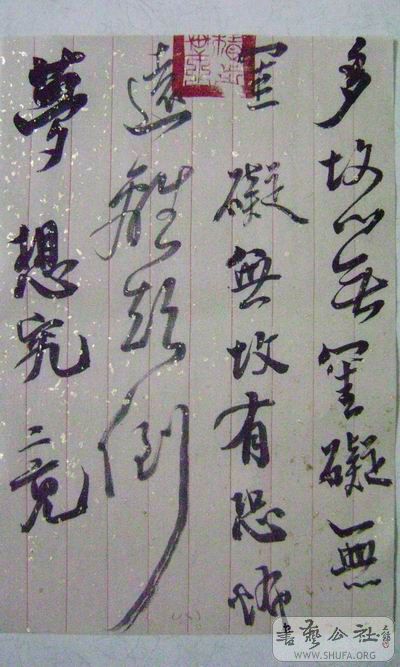 多故心無罣礙無
罣礙無故有恐怖
遠離顛倒
夢想究竟
書藝公社
WWW.SHUFA.ORG